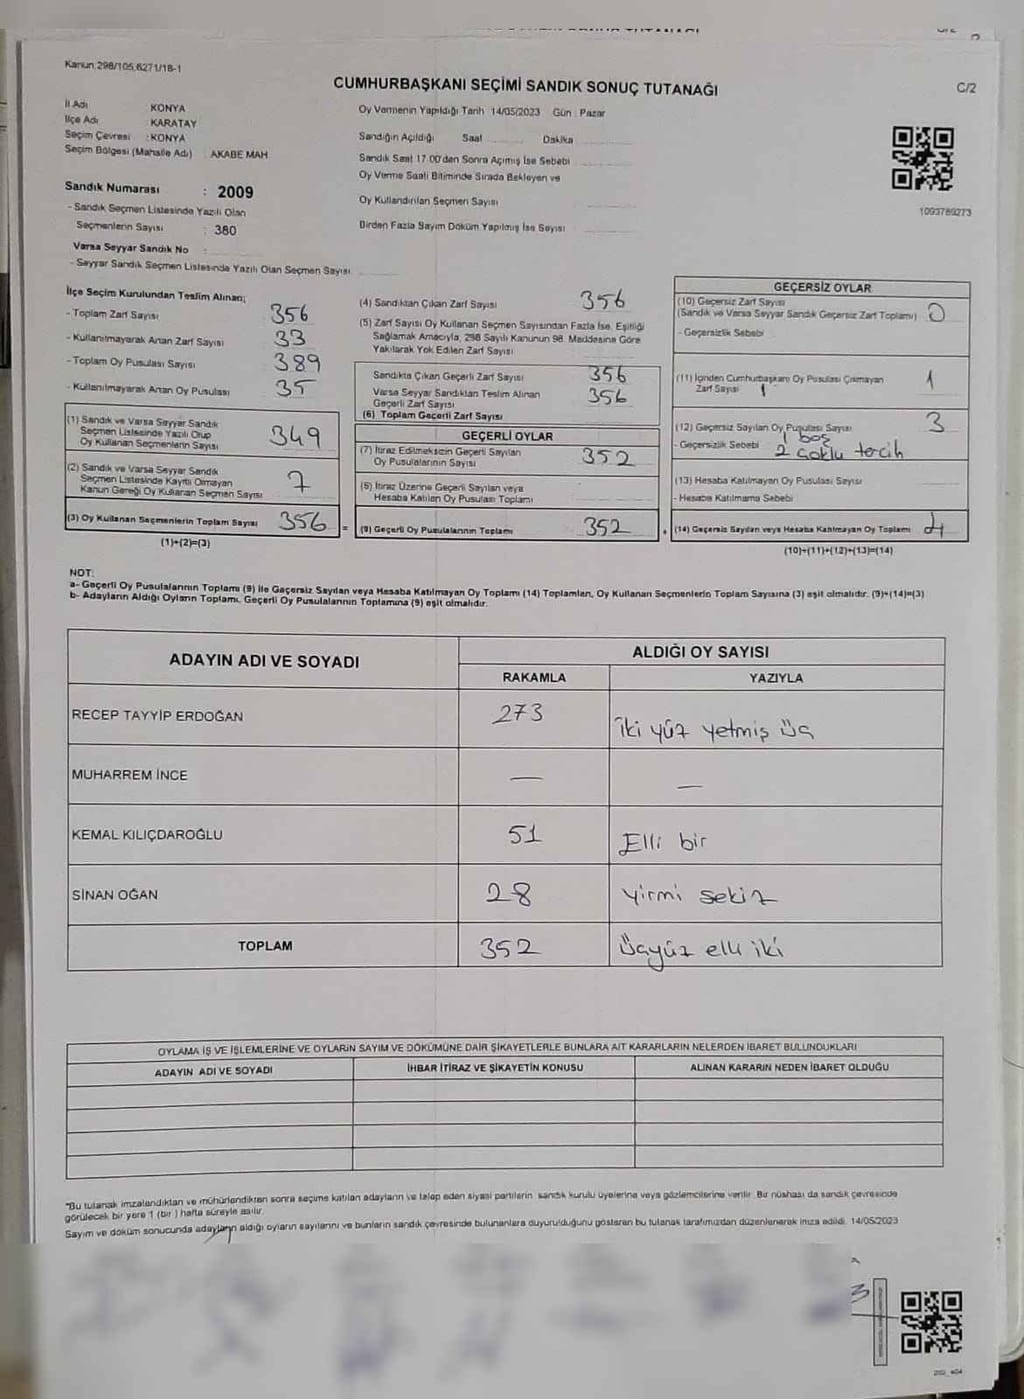 Kanun:298/105,6271/18-1
CUMHURBAŞKANI SEÇİMİ SANDIK SONUÇ TUTANAĞI
C/2
İl Adı KONYA
İlçe Adı KARATAY
Seçim Çevresi : KONYA
Seçim Bölgesi (Mahalle Adı) : AKABE MAH
Sandık Numarası : 2009
- Sandık Seçmen Listesinde Yazılı Olan
Seçmenlerin Sayısı : 380
Varsa Seyyar Sandık No :
- Seyyar Sandık Seçmen Listesinde Yazılı Olan Seçmen Sayısı
Oy Vermenin Yapıldığı Tarih 14/05/2023 Gün : Pazar
Sandığın Açıldığı Saat Dakika
Sandık Saat 17.00'den Sonra Açılmış İse Sebebi
Oy Verme Saati Bitiminde Sırada Bekleyen ve
Oy Kullandırılan Seçmen Sayısı
Birden Fazla Sayım Döküm Yapılmış İse Sayısı
1093789273
İlçe Seçim Kurulundan Teslim Alınan;
- Toplam Zarf Sayısı 356
- Kullanılmayarak Artan Zarf Sayısı 33
- Toplam Oy Pusulası Sayısı 389
- Kullanılmayarak Artan Oy Pusulası 35
(1) Sandık ve Varsa Seyyar Sandık
Seçmen Listesinde Yazılı Olup
Oy Kullanan Seçmenlerin Sayısı 349
(2) Sandık ve Varsa Seyyar Sandık
Seçmen Listesinde Kayıtlı Olmayan
Kanun Gereği Oy Kullanan Seçmen Sayısı 7
(3) Oy Kullanan Seçmenlerin Toplam Sayısı 356 =
(1)+(2)=(3)
(4) Sandıktan Çıkan Zarf Sayısı 356
(5) Zarf Sayısı Oy Kullanan Seçmen Sayısından Fazla İse, Eşitliği
Sağlamak Amacıyla, 298 Sayılı Kanunun 98. Maddesine Göre
Yakılarak Yok Edilen Zarf Sayısı
Sandıkta Çıkan Geçerli Zarf Sayısı 356
Varsa Seyyar Sandıktan Teslim Alınan 356
Geçerli Zarf Sayısı
(6) Toplam Geçerli Zarf Sayısı
GEÇERLİ OYLAR
(7) İtiraz Edilmeksizin Geçerli Sayılan
Oy Pusulalarının Sayısı 352
(8) İtiraz Üzerine Geçerli Sayılan veya
Hesaba Katılan Oy Pusulası Toplamı
(9) Geçerli Oy Pusulalarının Toplamı 352 +
GEÇERSİZ OYLAR
(10) Geçersiz Zarf Sayısı
(Sandık ve Varsa Seyyar Sandık Geçersiz Zarf Toplamı) 0
- Geçersizlik Sebebi
(11) İçinden Cumhurbaşkanı Oy Pusulası Çıkmayan
Zarf Sayısı 1 1
(12) Geçersiz Sayılan Oy Pusulası Sayısı 3
- Geçersizlik Sebebi 1 boş
2 çoklu tercih
(13) Hesaba Katılmayan Oy Pusulası Sayısı
- Hesaba Katılmama Sebebi
(14) Geçersiz Sayılan veya Hesaba Katılmayan Oy Toplamı 4
(10)+(11)+(12)+(13)=(14)
NOT:
a- Geçerli Oy Pusulalarının Toplamı (9) ile Geçersiz Sayılan veya Hesaba Katılmayan Oy Toplamı (14) Toplamları, Oy Kullanan Seçmenlerin Toplam Sayısına (3) eşit olmalıdır. (9)+(14)=(3)
b- Adayların Aldığı Oyların Toplamı, Geçerli Oy Pusulalarının Toplamına (9) eşit olmalıdır.
ADAYIN ADI VE SOYADI
ALDIĞI OY SAYISI
RAKAMLA YAZIYLA
RECEP TAYYİP ERDOĞAN 273 iki yüz yetmiş üç
MUHARREM İNCE — —
KEMAL KILIÇDAROĞLU 51 Elli bir
SİNAN OĞAN 28 yirmi sekiz
TOPLAM 352 Üçyüz elli iki
OYLAMA İŞ VE İŞLEMLERİNE VE OYLARIN SAYIM VE DÖKÜMÜNE DAİR ŞİKAYETLERLE BUNLARA AİT KARARLARIN NELERDEN İBARET BULUNDUKLARI
ADAYIN ADI VE SOYADI İHBAR İTİRAZ VE ŞİKAYETİN KONUSU ALINAN KARARIN NEDEN İBARET OLDUĞU
*Bu tutanak imzalandıktan ve mühürlendikten sonra seçime katılan adayların ve talep eden siyasi partilerin sandık kurulu üyelerine veya gözlemcilerine verilir. Bir nüshası da sandık çevresinde
görülecek bir yere 1 (bir ) hafta süreyle asılır.
Sayım ve döküm sonucunda adayların aldığı oyların sayılarını ve bunların sandık çevresinde bulunanlara duyurulduğunu gösteren bu tutanak tarafımızdan düzenlenerek imza edildi. 14/05/2023